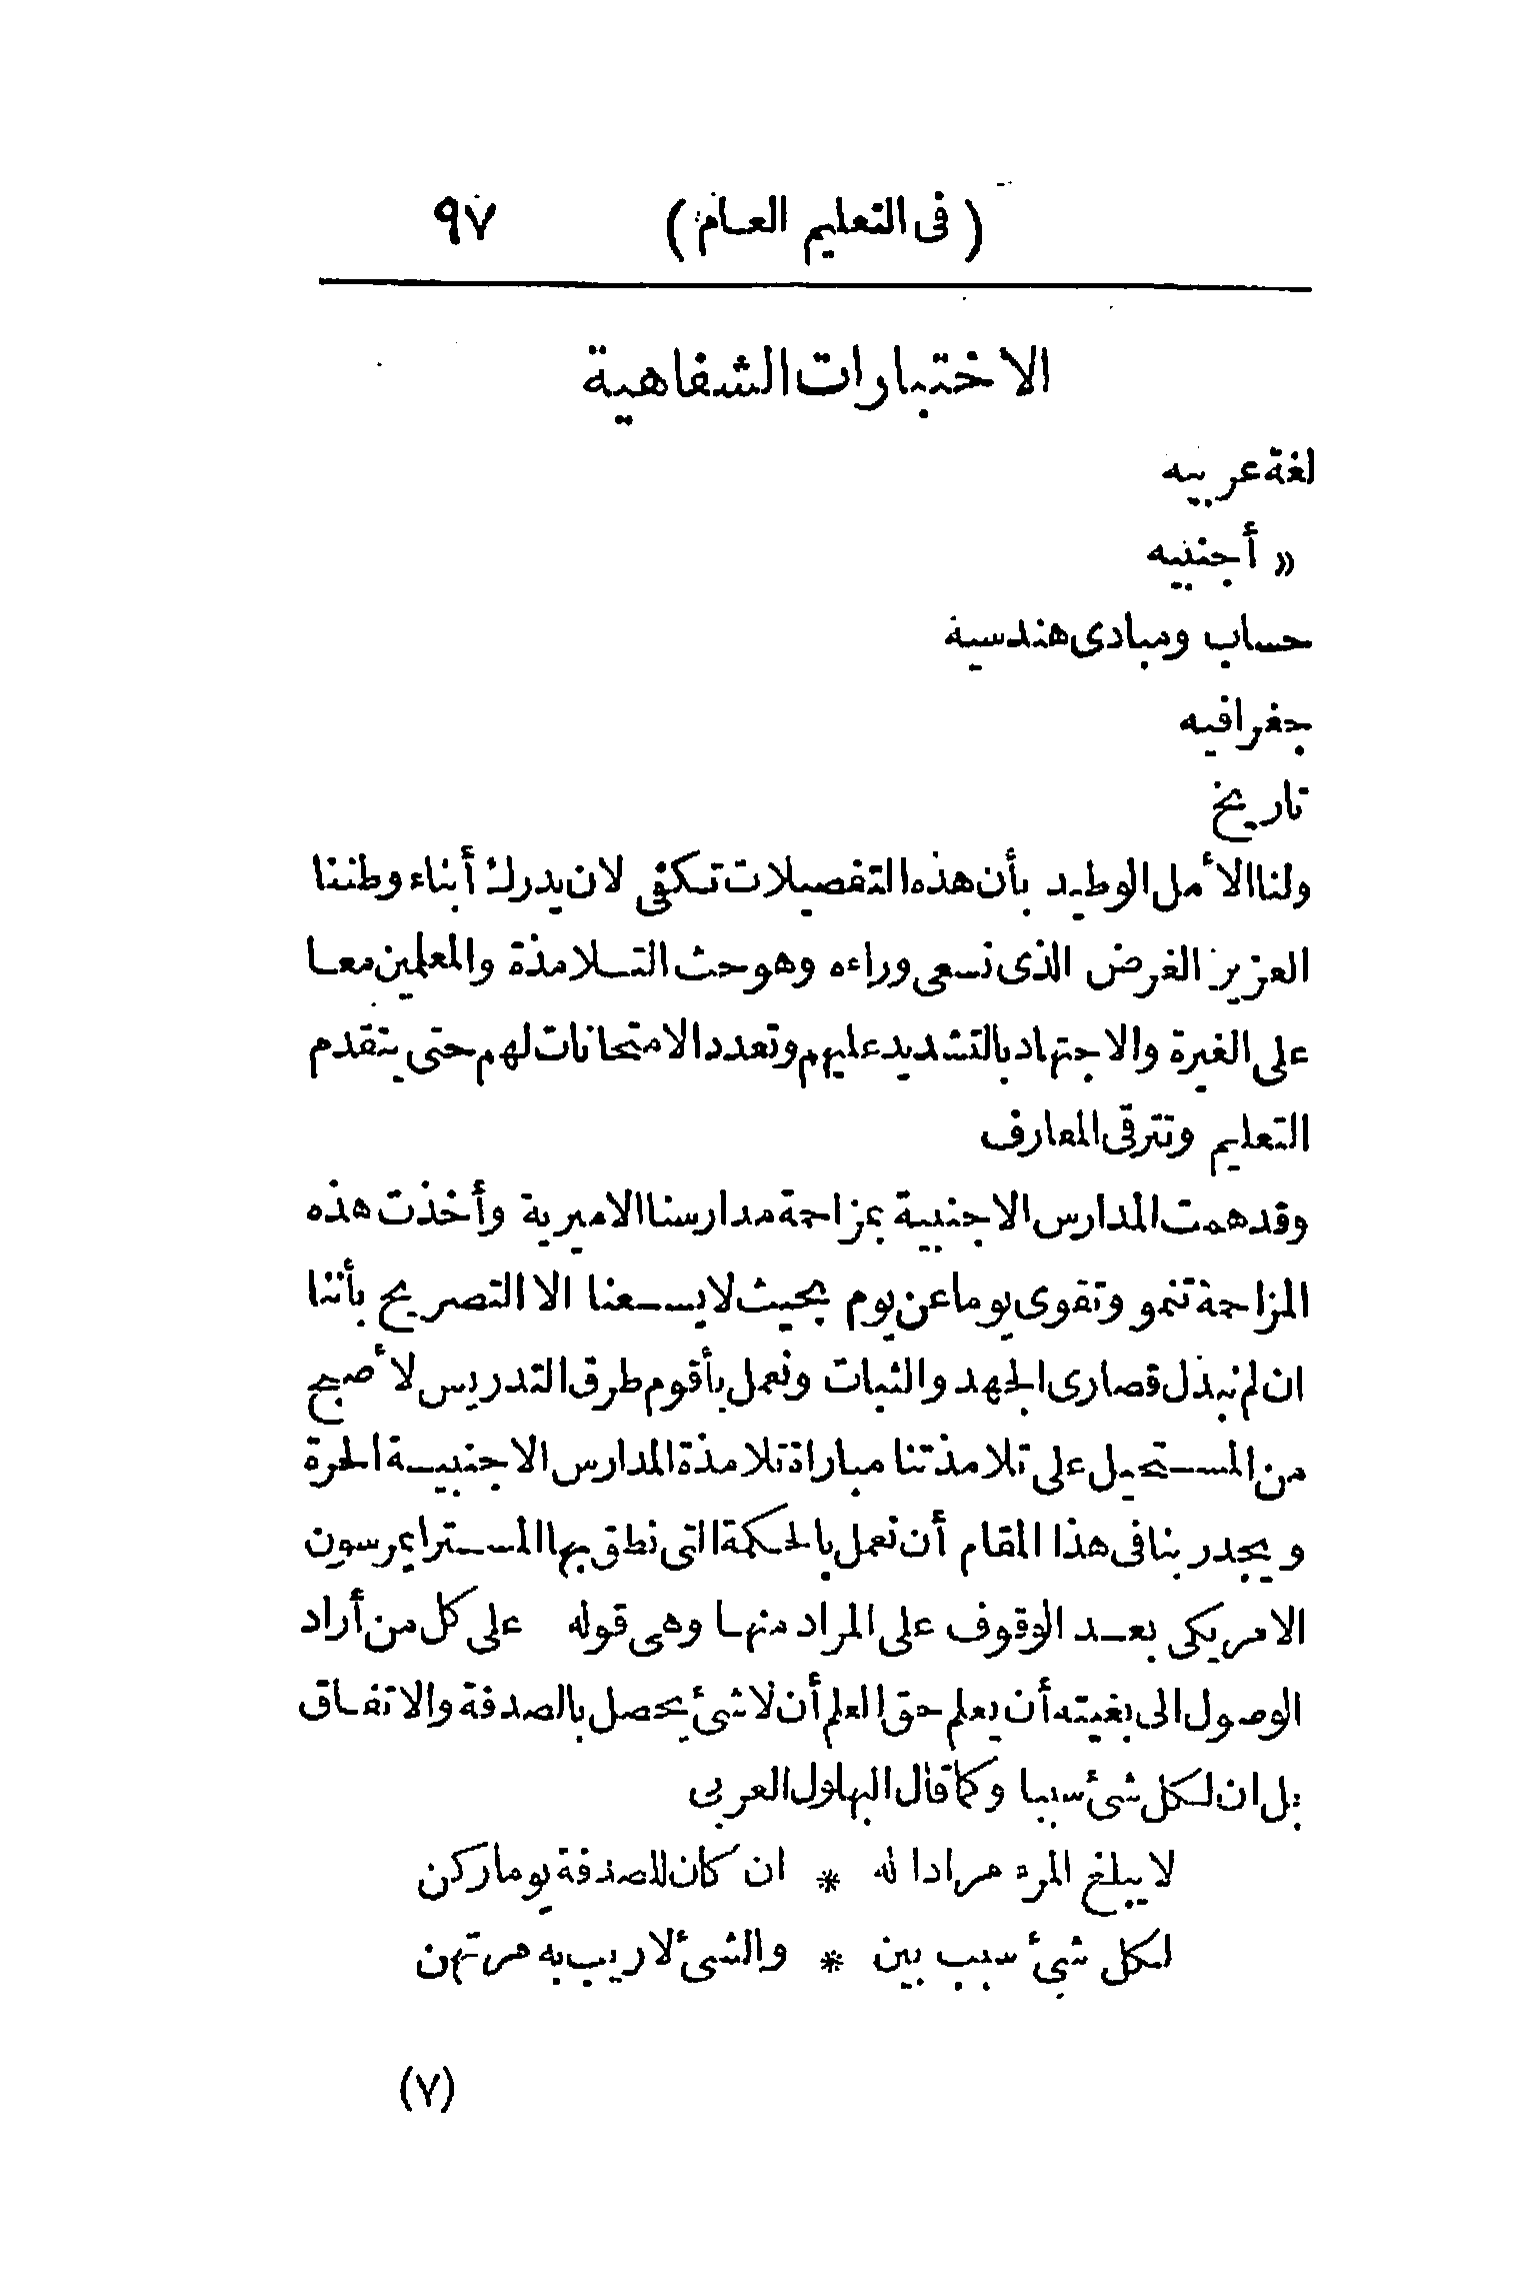 ( فى التعليم العام ) ٩٧
الاختبارات الشفاهية
لغة عربيه
» أجنبيه
حساب ومبادى هندسية
جغرافيه
تاريخ
ولنا الأمل الوطيد بأن هذه التفصيلات تكفى لان يدرك أبناء وطننا
العزيز الغرض الذى نسعى وراءه وهو حث التلامذة والمعلمين معا
على الغيرة والاجتهاد بالتشديد عليهم وتعدد الامتحانات لهم حتى يتقدم
التعليم وتترقى المعارف
وقد همت المدارس الاجنبية بمزاحمة مدارسنا الاميرية وأخذت هذه
المزاحمة تنمو وتقوى يوما عن يوم بحيث لا يسعنا الا التصريح بأننا
ان لم نبذل قصارى الجهد والثبات ونعمل بأقوم طرق التدريس لأصبح
من المستحيل على تلامذتنا مباراة تلامذة المدارس الاجنبية الحرة
ويجدر بنا فى هذا المقام أن نعمل بالحكمة التى نطق بها المستر ايمرسون
الامريكى بعد الوقوف على المراد منها وهى قوله على كل من أراد
الوصول الى بغيته أن يعلم حق العلم أن لا شئ يحصل بالصدفة والاتفاق
بل ان لكل شئ سببا وكما قال البهلول العربى
لا يبلغ المرء مرادا له * ان كان للصدفة يوما ركن
لكل شئ سبب بين * والشئ لا ريب به مرتهن
(٧)